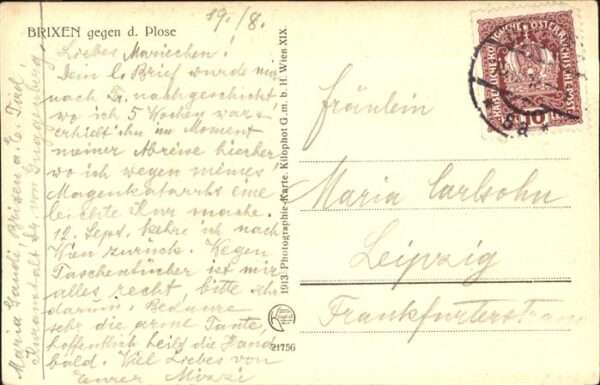 BRIXEN gegen d. Plose
19./8.
Liebes Mariechen!
Dein l. Brief wurde mir
nach nachgeschickt,
wo ich 5 Wochen war
erhielt ihn im Moment
meiner Abreise hierher
wo ich wegen meines
Magenkatarrhs eine
leichte Kur mache.
12. Sept. kehre ich nach
Wien zurück. Wegen
Taschentücher ist mir
alles recht, bitte
darum. Bedaure
sehr die arme Tante,
hoffentlich heilt die Hand
bald. Viel Liebes von
Eurer Mizzi
Maria Gaudi, Brixen a. E. Tirol
Kuranstalt Dr. von Guggenberg
1913 Photographie-Karte. Kilophot G. m. b. H. Wien XIX.
21756
Fräulein
Maria Carlsohn
Leipzig
Frankfurterstrasse
10